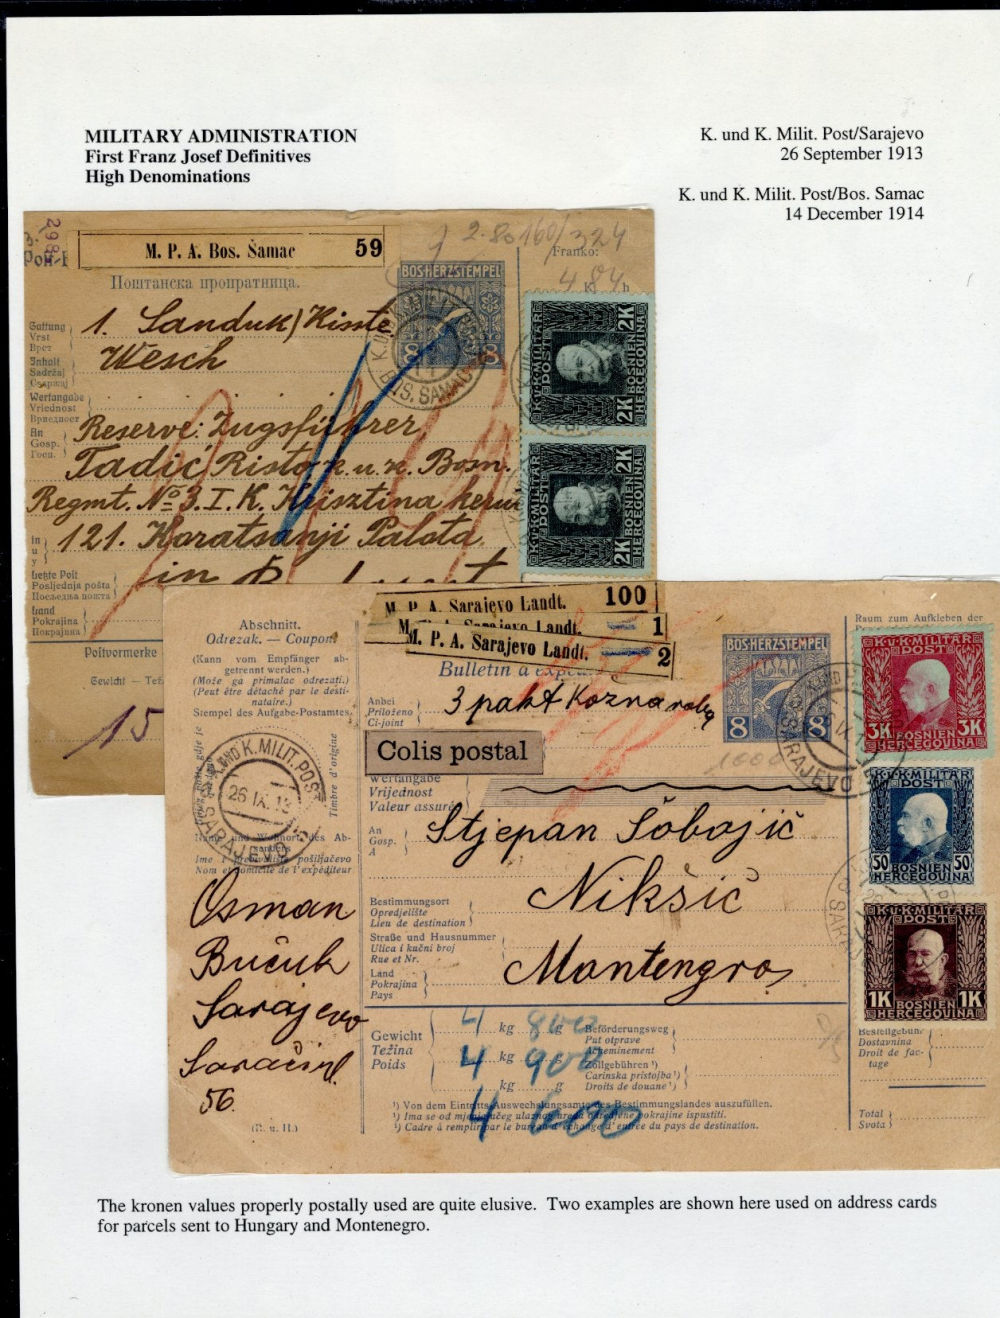 MILITARY ADMINISTRATION
First Franz Josef Definitives
High Denominations
K. und K. Milit. Post/Sarajevo
26 September 1913
K. und K. Milit. Post/Bos. Samac
14 December 1914
M. P. A. Bos. Šamac 59
Поштанска пропратница.
2.80 160/324
Franko:
4.84
K h
BOS·HERZ STEMPEL
8 8
1. Sanduk/Kiste
Wesch
Gattung
Vrst
Врст
Inhalt
Sadržaj
Садржај
Wertangabe
Vriednost
Вриједност
An
Gosp.
Госп.
Reserve: Zugsführer
Tadić Risto k. u. k. Bosn.
Regmt. No 3. I. K. Krisztina
121. Koratsanji Palota
in
in
u
y
Letzte Post
Posljednja pošta
Посљедња пошта
Land
Pokrajina
Покрајина
Postvermerke
Gewicht — Tež
15
BOS. SAMAC
K.u.K. MILITÄR POST
2K 2K
BOSNIEN HERCEGOVINA
K.u.K. MILITÄR POST
2K 2K
BOSNIEN HERCEGOVINA
M. P. A. Sarajevo Landt. 100
M. P. A. Sarajevo Landt. 1
M. P. A. Sarajevo Landt. 2
Abschnitt.
Odrezak. — Coupon.
(Kann vom Empfänger ab-
getrennt werden.)
(Može ga primalac odrezati.)
(Peut être détaché par le desti-
nataire.)
Stempel des Aufgabe-Postamtes.
Timbre d'origine
K. UND K. MILIT. POST
26 IX. 13
SARAJEVO
Name und Wohnort des Ab-
senders
Ime i prebivalište pošiljačevo
Nom et domicile de l'expéditeur
Osman
Bučuk
Sarajevo
56.
(R. u. H.)
Bulletin d'expéd
Anbei
Priloženo
Ci-joint
3 paket Kožna roba
Colis postal
Wertangabe
Vrijednost
Valeur assurée
1000
An
Gosp.
A
Stjepan Šobajić
Bestimmungsort
Opredjelište
Lieu de destination
Nikšić
Straße und Hausnummer
Ulica i kućni broj
Rue et Nr.
Land
Pokrajina
Pays
Montengro
Gewicht
Težina
Poids
4 kg 800 g
4 kg 900 g
kg g
4 600
Beförderungsweg
Put otprave
Acheminement
Zollgebühren ¹)
Carinska pristojba ¹)
Droits de douane ¹)
¹) Von dem Eintritts-Auswechslungsamte des Bestimmungslandes auszufüllen.
¹) Ima se od mjenjačeg ulaznog ureda određene pokrajine ispustiti.
¹) Cadre à remplir par le bureau d'échange d'entrée du pays de destination.
BOS·HERZ STEMPEL
8 8
Raum zum Aufkleben der
K.u.K. MILITÄR POST
3K 3K
BOSNIEN HERCEGOVINA
K.u.K. MILITÄR POST
50 50
BOSNIEN HERCEGOVINA
K.u.K. MILITÄR POST
1K 1K
BOSNIEN HERCEGOVINA
Bestellgebühr
Dostavnina
Droit de fac-
tage
Total
Svota
The kronen values properly postally used are quite elusive. Two examples are shown here used on address cards
for parcels sent to Hungary and Montenegro.